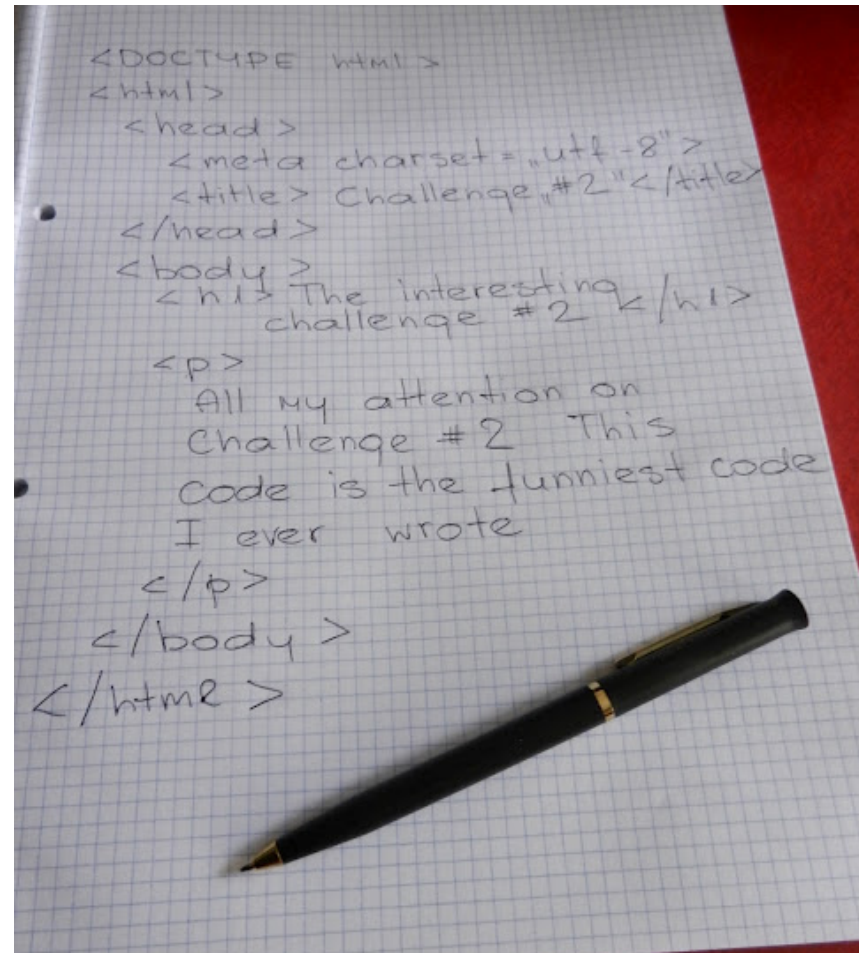 <DOCTYPE html>
<html>
<head>
<meta charset=„utf-8">
<title> Challenge „#2"</title>
</head>
<body>
<h1> The interesting
challenge #2 </h1>
<p>
All my attention on
Challenge #2 This
code is the funniest code
I ever wrote
</p>
</body>
</html>